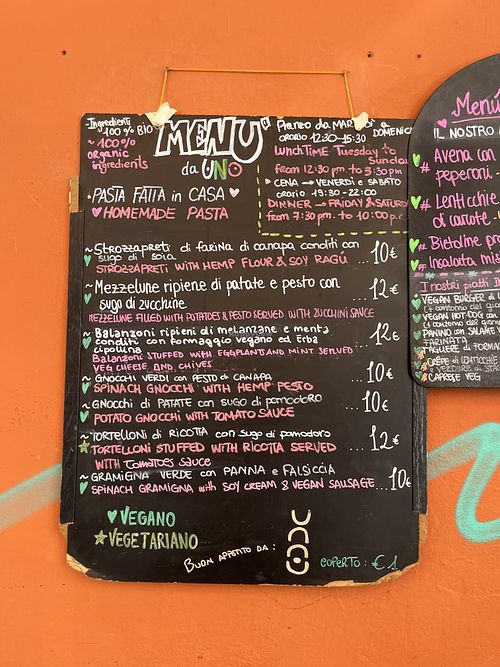 -Ingredienti
100% BIO
~ 100%
organic
ingredients
MENU
da UNO
Pranzo da MARTEDÌ a
DOMENICA
ORARIO 12:30-15:30
LUNCHTIME Tuesday to
Sunday
from 12:30 p.m. to 3:30 p.m
CENA → VENERDÌ e SABATO
ORARIO 19:30 - 22:00
DINNER → FRIDAY & SATURD
from 7:30 p.m. to 10:00 p.m
PASTA FATTA in CASA
HOMEMADE PASTA
~ Strozzapreti di farina di canapa conditi con
sugo di soia ... 10€
STROZZAPRETI with HEMP FLOUR & SOY RAGÚ
~ Mezzelune ripiene di patate e pesto con
sugo di zucchine ... 12€
MEZZELUNE FILLED WITH POTATOES & PESTO SERVED WITH ZUCCHINI SAUCE
~ Balanzoni ripieni di melanzane e menta
conditi con formaggio vegano ed Erba
cipollina ... 12€
Balanzoni STUFFED WITH EGGPLANT AND MINT SERVED
VEG CHEESE AND CHIVES
~ GNOCCHI VERDI con PESTO di CANAPA ... 10€
SPINACH GNOCCHI WITH HEMP PESTO
~ GNOCCHI di PATATE con SUGO di POMODORO ... 10€
POTATO GNOCCHI WITH TOMATO SAUCE
~ TORTELLONI di RICOTTA con sugo di pomodoro ... 12€
TORTELLONI STUFFED WITH RICOTTA SERVED
WITH TOMATOES SAUCE
~ GRAMIGNA VERDE con PANNA e FALSICCIA
SPINACH GRAMIGNA with SOY CREAM & VEGAN SAUSAGE ... 10€
VEGANO
VEGETARIANO
BUON APPETITO DA :
UNO
COPERTO : €1
Menù
IL NOSTRO
# Avena con
peperoni -
# Lenticchie
di carote -
# Bietoline
# Insalata mis
I nostri piatti
VEGAN BURGER di
(+ contorno del gior
VEGAN HOT-DOG con
(+ contorno del giorno
PANINO con SALAME
FARINATA
TAGLIERE di FORMA
CRÊPE di LENTICCHIE
CAPRESE VEG